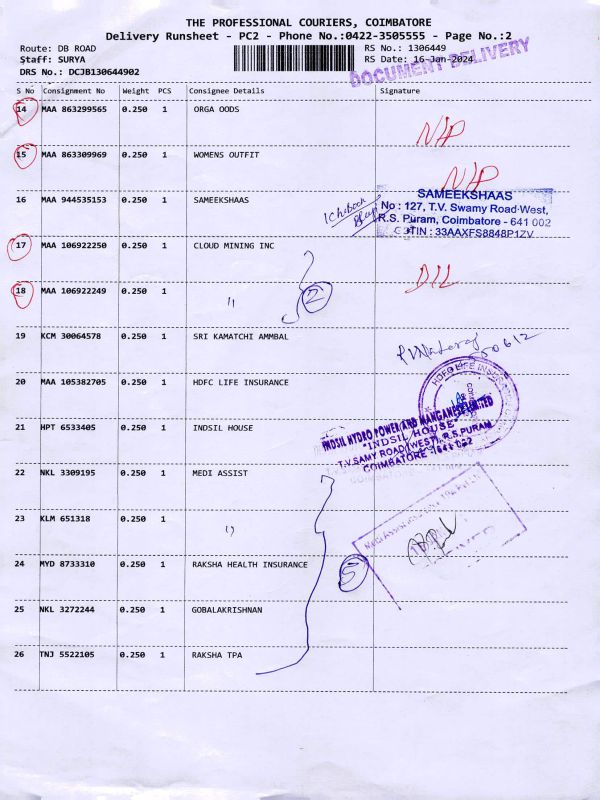 THE PROFESSIONAL COURIERS, COIMBATORE
Delivery Runsheet - PC2 - Phone No.:0422-3505555 - Page No.:2
Route: DB ROAD RS No.: 1306449
Staff: SURYA RS Date: 16-Jan-2024
DRS No.: DCJB130644902
DOCUMENT DELIVERY
S No Consignment No Weight PCS Consignee Details Signature
14 MAA 863299565 0.250 1 ORGA OODS
N/P
15 MAA 863309969 0.250 1 WOMENS OUTFIT
N/P
16 MAA 944535153 0.250 1 SAMEEKSHAAS
SAMEEKSHAAS
No : 127, T.V. Swamy Road-West,
R.S. Puram, Coimbatore - 641 002
GSTIN : 33AAXFS8848P1ZV
17 MAA 106922250 0.250 1 CLOUD MINING INC
18 MAA 106922249 0.250 1 " 2
D/L
19 KCM 30064578 0.250 1 SRI KAMATCHI AMMBAL
20 MAA 105382705 0.250 1 HDFC LIFE INSURANCE
HDFC LIFE INSURANCE
21 HPT 6533405 0.250 1 INDSIL HOUSE
INDSIL HYDRO POWER AND MANGANESE LIMITED
"INDSIL HOUSE"
T.V.SAMY ROAD (WEST), R.S.PURAM
COIMBATORE - 641 002
22 NKL 3309195 0.250 1 MEDI ASSIST
23 KLM 651318 0.250 1 "
24 MYD 8733310 0.250 1 RAKSHA HEALTH INSURANCE 5
25 NKL 3272244 0.250 1 GOBALAKRISHNAN
26 TNJ 5522105 0.250 1 RAKSHA TPA